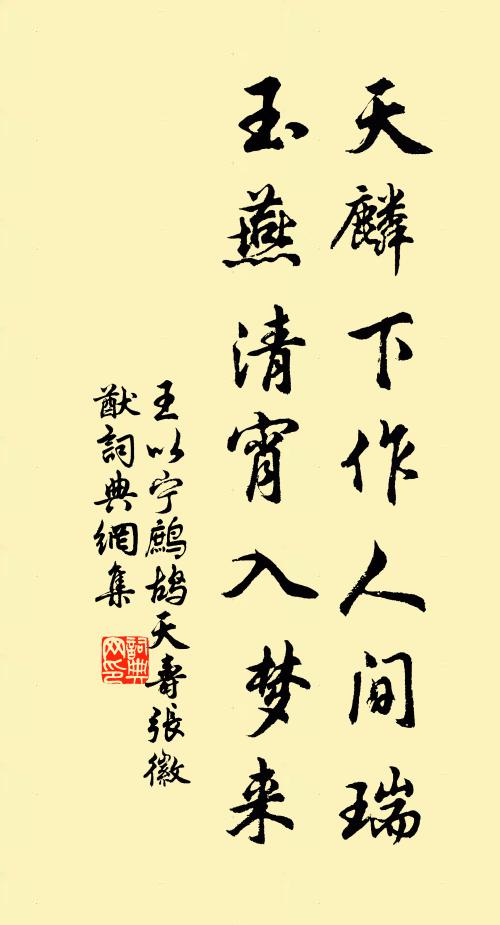 天麟下作人间瑞
玉燕清宵入梦来
王以宁鹧鸪天寿張徽
猷詞典網集
詞典
网印